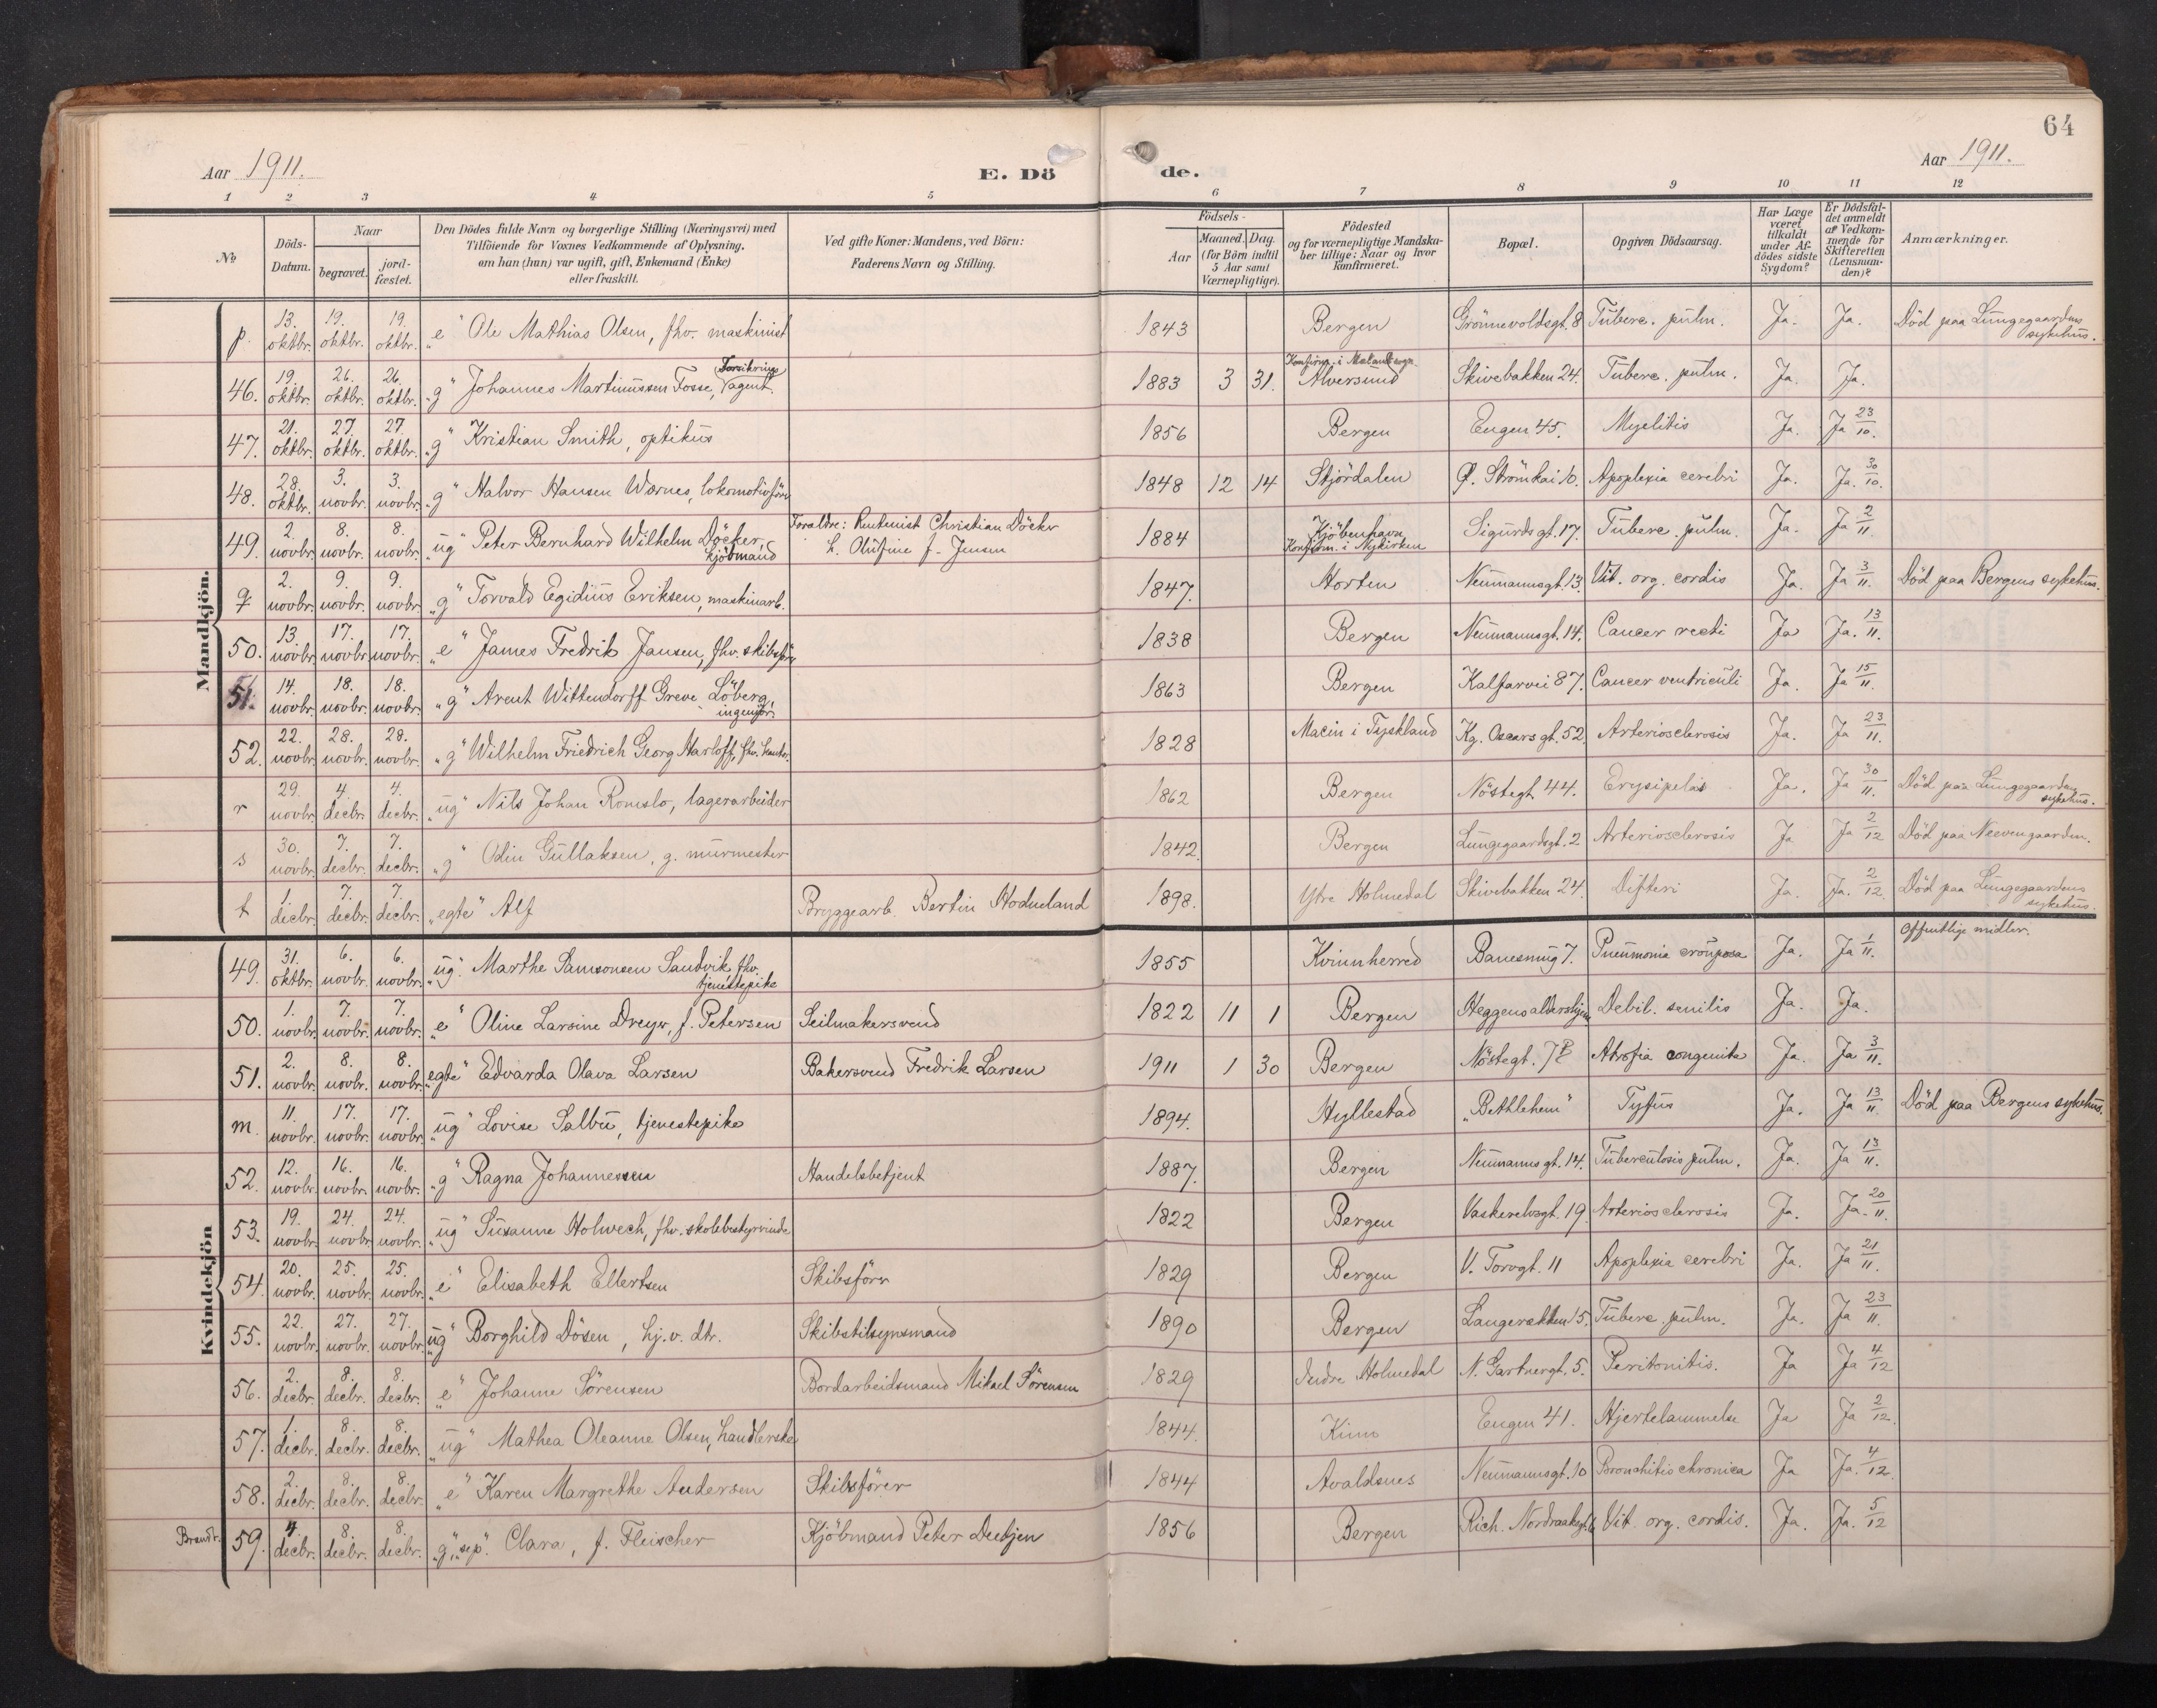 64
Aar 1911. E. Dö de. Aar 1911.
1 2 3 4 5 6 7 8 9 10 11 12
No
Döds-Datum.
Naar begravet. jord-fæstet.
Den Dödes fulde Navn og borgerlige Stilling (Næringsvei) med Tilföiende for Voxnes Vedkommende af Oplysning, om han (hun) var ugift, gift, Enkemand (Enke) eller fraskilt.
Ved gifte Koner: Mandens, ved Börn: Faderens Navn og Stilling.
Födsels- Aar Maaned. Dag. (for Börn indtil 5 Aar samt Værnepligtige).
Födested og for værnepligtige Mandskaber tillige: Naar og hvor konfirmeret.
Bopæl.
Opgiven Dödsaarsag.
Har Læge været tilkaldt under Afdödes sidste Sygdom?
Er Dödsfaldet anmeldt af Vedkommende for Skifteretten (Lensmanden)?
Anmærkninger.
Mandkjön.
p. 13. oktbr. 19. oktbr. 19. oktbr. "e" Ole Mathias Olsen, fhv. maskinist 1843 Bergen Grönnevoldsgt. 8 Tuberc. pulm. Ja. Ja. Död paa Lungegaardens sykehus.
46. 19. oktbr. 26. oktbr. 26. oktbr. "g" Johannes Martinussen Fosse, Forsikrings agent. 1883 3 31. Konfirm. i sogn. Alversund Skivebakken 24. Tuberc. pulm. Ja. Ja.
47. 21. oktbr. 27. oktbr. 27. oktbr. "g" Kristian Smith, optikus 1856 Bergen Engen 45. Myelitis Ja. Ja 23/10.
48. 28. oktbr. 3. novbr. 3. novbr. "g" Halvor Hansen Wærnes, lokomotivförer 1848 12 14 Stjördalen Ø. Strömkai 10. Apoplexia cerebri Ja. Ja. 30/10.
49. 2. novbr. 8. novbr. 8. novbr. "ug" Peter Bernhard Wilhelm Döcker, kjöbmand Forældre: Rentenist Christian Döcker h. Olufine f. Jensen 1884 Kjöbenhavn Konfirm. i Nykirken Sigurdsgt. 17. Tuberc. pulm. Ja. Ja 2/11
q 2. novbr. 9. novbr. 9. novbr. "g" Torvald Egidius Eriksen, maskinarb. 1847. Horten Neumannsgt. 13. Vit. org. cordis Ja. Ja 3/11. Död paa Bergens sykehus.
50. 13. novbr. 17. novbr. 17. novbr. "e" James Fredrik Jansen, fhv. skibsför 1838 Bergen Neumannsgt. 14. Cancer recti Ja Ja. 13/11.
51. 14. novbr. 18. novbr. 18. novbr. "g" Arent Wittendorff Greve Löberg, ingeniör. 1863 Bergen Kalfarvei 87. Cancer ventriculi Ja. Ja 15/11.
52. 22. novbr. 28. novbr. 28. novbr. "g" Wilhelm Friedrich Georg Harloff, fhv. 1828 i Tyskland Kg. Oscars gt. 52. Arteriosclerosis Ja. Ja 23/11.
r 29. novbr. 4. decbr. 4. decbr. "ug" Nils Johan Romslo, lagerarbeider 1862 Bergen Nöstegt. 44. Erysipelas Ja. Ja 30/11. Död paa Lungegaardens sykehus.
s 30. novbr. 7. decbr. 7. decbr. "g" Odin Gullaksen, g. murmester 1842. Bergen Lungegaardsgt. 2 Arteriosclerosis Ja Ja 2/12 Död paa Neevengaarden.
t 1. decbr. 7. decbr. 7. decbr. "egte" Alf Bryggearb. Bertin Hodneland 1898. Ytre Holmedal Skivebakken 24. Difteri Ja. Ja. 2/12. Död paa Lungegaardens sykehus.
Kvindekjön
49. 31. oktbr. 6. novbr. 6. novbr. "ug." Marthe Samsonsen Sandvik, fhv. tjenestepike 1855 Kvinnherred Banesmug 7. Pneumonia crouposa Ja. Ja 1/11. Offentlige midler.
50. 1. novbr. 7. novbr. 7. novbr. "e" Oline Larsine Dreyer, f. Petersen Seilmakersvend 1822 11 1 Bergen Heggens aldershjem Debil. senilis Ja. Ja.
51. 2. novbr. 8. novbr. 8. novbr. "egte" Edvarda Olava Larsen Bakersvend Fredrik Larsen 1911 1 30 Bergen Nöstegt. 7 Atrofia congenita Ja. Ja 3/11.
m. 11. novbr. 17. novbr. 17. novbr. "ug" Lovise Salbu, tjenestepike 1894. Hyllestad "Bethlehem" Tyfus Ja. Ja 13/11. Död paa Bergens sykehus.
52. 12. novbr. 16. novbr. 16. novbr. "g" Ragna Johannessen Handelsbetjent 1887. Bergen Neumannsgt. 14. Tuberculosis pulm. Ja. Ja 13/11.
53. 19. novbr. 24. novbr. 24. novbr. "ug" Susanne Holwech, fhv. skolebestyrerinde 1822 Bergen Vaskerelvsgt. 19. Arteriosclerosis Ja. Ja. 20/11.
54. 20. novbr. 25. novbr. 25. novbr. "e" Elisabeth Ellertsen Skibsförer 1829 Bergen V. Torvgt. 11 Apoplexia cerebri Ja. Ja 21/11.
55. 22. novbr. 27. novbr. 27. novbr. "ug" Borghild Dösen, hj.v. dtr. Skibstilsynsmand 1890 Bergen Langerækken 15. Tuberc. pulm. Ja. Ja 23/11.
56. 2. decbr. 8. decbr. 8. decbr. "e" Johanne Sörensen Bordarbeidsmand Mikael Sörensen 1829 Indre Holmedal N. Gartnergt. 5. Peritonitis. Ja Ja 4/12
57. 1. decbr. 8. decbr. 8. decbr. "ug" Mathea Oleanne Olsen, handlerske 1844. Kinn Engen 41. Hjertelammelse Ja Ja 2/12.
58. 2. decbr. 8. decbr. 8. decbr. "e" Karen Margrethe Andersen Skibsförer 1844 Avaldsnes Neumannsgt. 10 Bronchitis chronica Ja Ja. 4/12.
Brandt. 59. 4. decbr. 8. decbr. 8. decbr. "g", "sep". Clara, f. Fleischer Kjöbmand Peter 1856 Bergen Rich. Nordraaksgt. Vit. org. cordis. Ja. Ja. 5/12